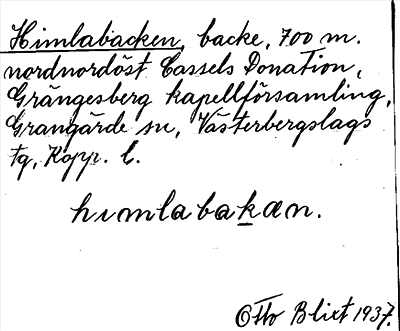 Himlabacken, backe, 700 m.
nordnordöst Cassels Donation,
Grängesberg kapellförsamling,
Grangärde sn, Västerbergslags
tg, Kopp. l.
hımlabakæn.
Otto Blixt 1937.